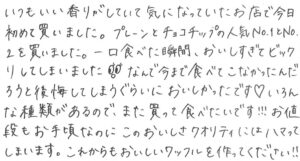 いつもいい香りがしていて気になっていたお店で今日
初めて買いました。プレーンとチョコチップの人気No.1とNo.
2を買いました。一口食べた瞬間、おいしすぎてビック
リしてしまいました なんで今まで食べてこなかったんだ
ろうと後悔してしまうぐらいにおいしかったです♡いろん
な種類があるので、また買って食べたいです!!!お値
段もお手頃なのにこのおいしさクオリティにはハマって
しまいます。これからもおいしいワッフルを作ってください!!